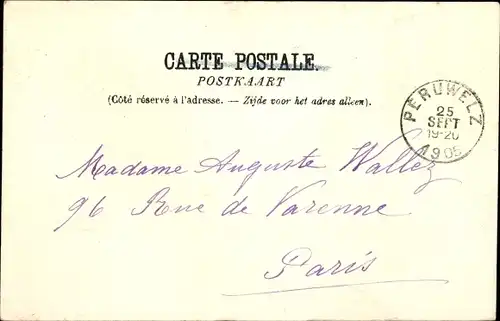 CARTE POSTALE.
POSTKAART
(Côté réservé à l'adresse. — Zijde voor het adres alleen).
PERUWELZ
25
SEPT
19-20
1905
Madame Auguste Wallez
96 Rue de Varenne
Paris